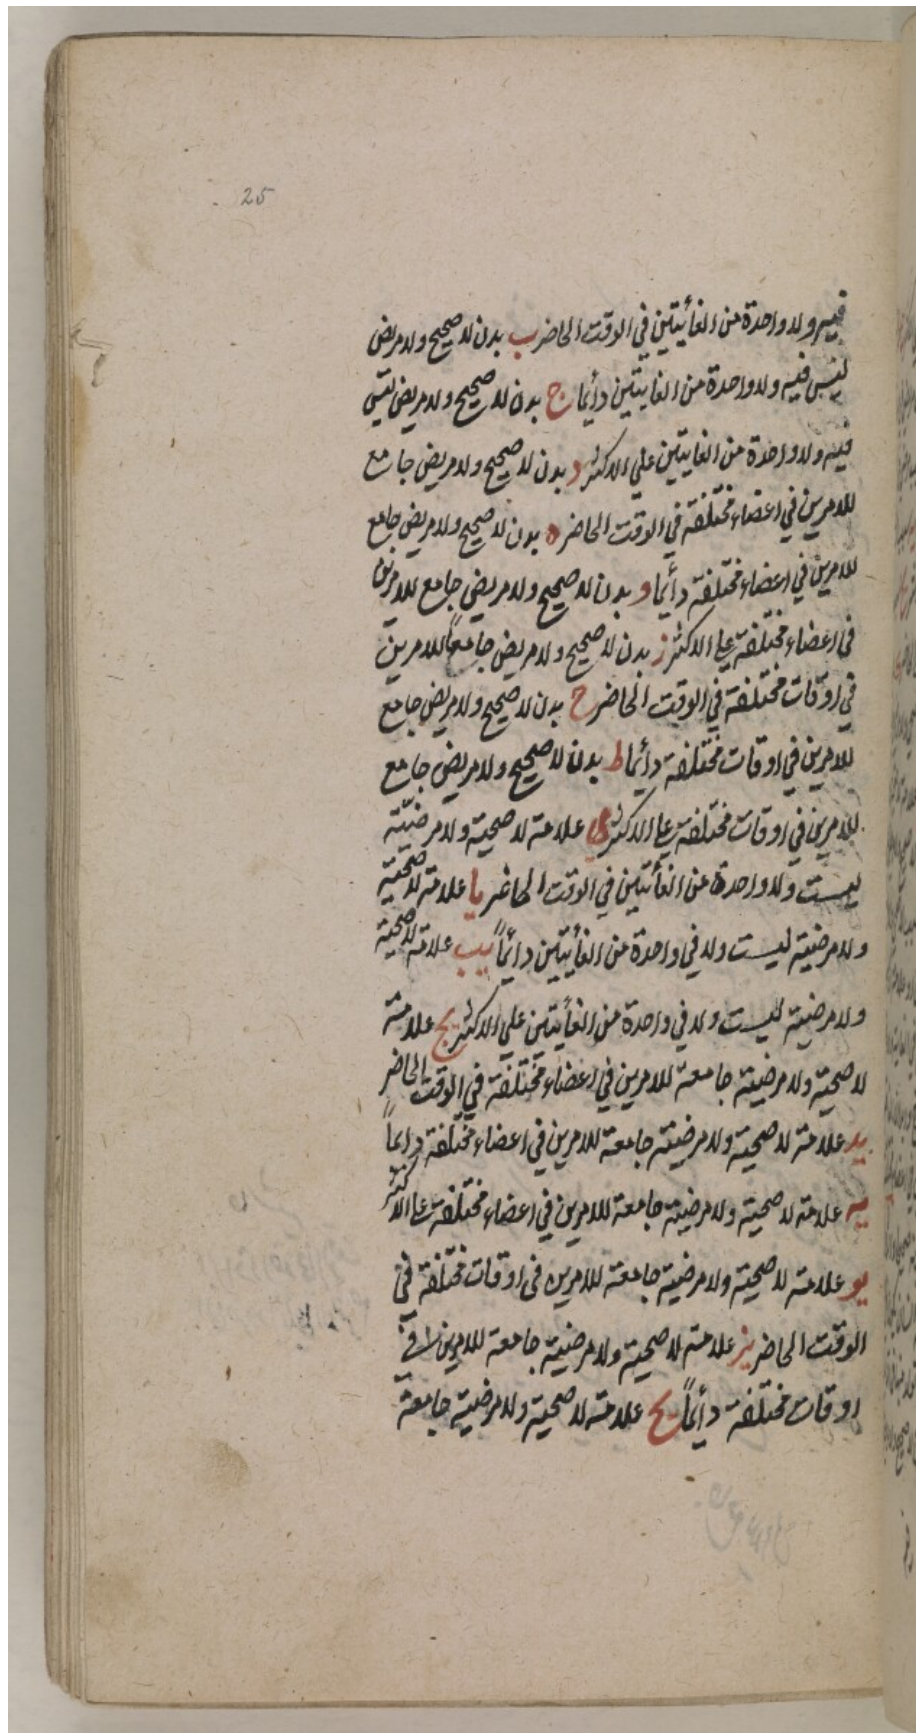 25
فيه ولا واحدة من الغأيتين في الوقت الحاضر ب بدن لا صحيح ولا مريض
ليس فيه ولا واحدة من الغايتين دأيما ج بدن لا صحيح ولا مريض ليس
فيه ولا واحدة من الغايتين علي الاكثر د بدن لا صحيح ولا مريض جامع
للامرين في اعضاء مختلفة في الوقت الحاضر ه بدن لا صحيح ولا مريض جامع
للامرين في اعضاء مختلفة دأيما و بدن لا صحيح ولا مريض جامع للامرين
في اعضاء مختلفة علي الاكثر ز بدن لا صحيح ولا مريض جامعاً للامرين
في اوقات مختلفة في الوقت الحاضر ح بدن لا صحيح ولا مريض جامع
للامرين في اوقات مختلفة دأيما ط بدن لا صحيح ولا مريض جامع
للامرين في اوقات مختلفة علي الاكثر ي علامة لا صحية ولا مرضيّة
ليست ولا واحدة من الغأيتين في الوقت الحاضر يا علامة لا صحية
ولا مرضية ليست ولا في واحدة من الغأيتين دأيماً يب علامة لا صحية
ولا مرضية ليست ولا في واحدة من الغأيتين علي الاكثر يج علامة
لا صحية ولا مرضية جامعة للامرين في اعضاء مختلفة في الوقت الحاضر
يد علامة لا صحية ولا مرضية جامعة للامرين في اعضاء مختلفة دايماً
يه علامة لا صحية ولا مرضية جامعة للامرين في اعضاء مختلفة علي الاكثر
يو علامة لا صحية ولا مرضية جامعة للامرين في اوقات مختلفة في
الوقت الحاضر يز علامة لا صحية ولا مرضية جامعة للامرين في
اوقات مختلفة دأيماً يح علامة لا صحية ولا مرضية جامعة